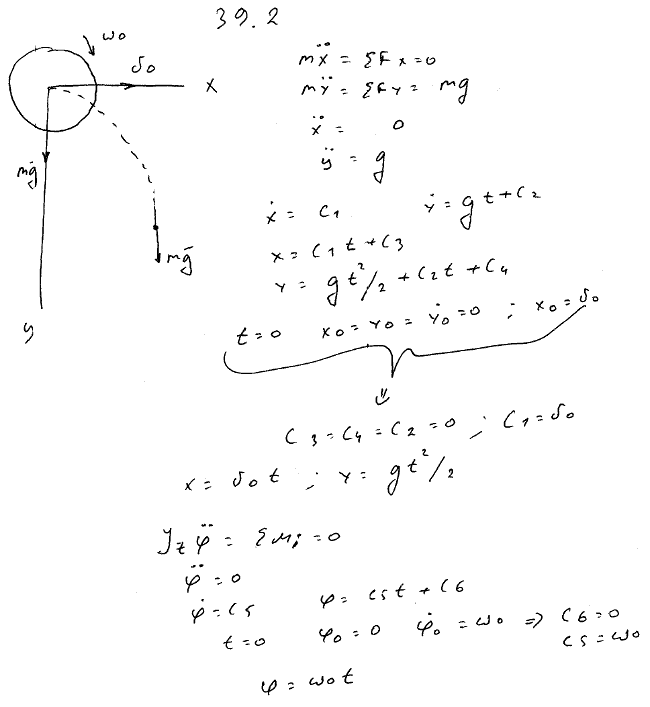 39.2
ω₀
v₀
x
mẍ = ΣFx = 0
mÿ = ΣFy = mg
ẍ = 0
ÿ = g
mḡ
ẋ = C₁ ẏ = gt + C₂
x = C₁t + C₃
y = gt²/2 + C₂t + C₄
mḡ
y
t = 0 x₀ = y₀ = ẏ₀ = 0 ; x₀ = v₀
⇓
C₃ = C₄ = C₂ = 0 ; C₁ = v₀
x = v₀t ; y = gt²/2
J_z φ̈ = ΣMᵢ = 0
φ̈ = 0
φ̇ = C₅ φ = C₅t + C₆
t = 0 φ₀ = 0 φ̇₀ = ω₀ ⇒ C₆ = 0
C₅ = ω₀
φ = ω₀t